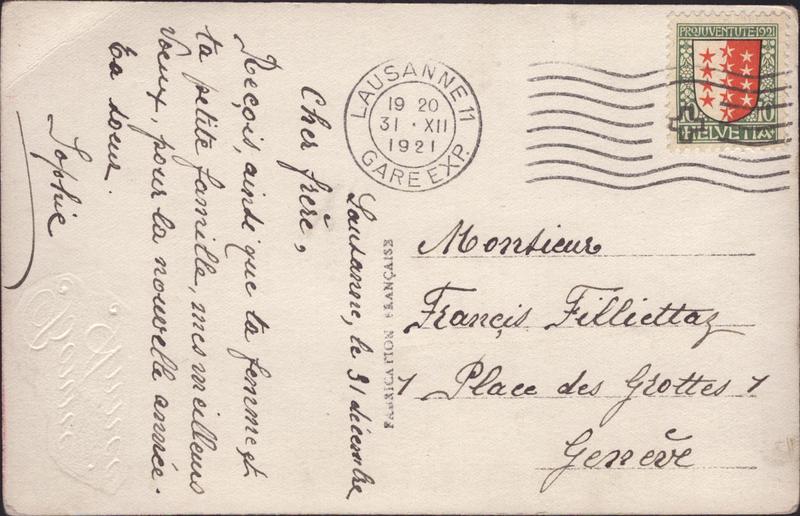 Lausanne, le 31 décembre
Cher frère,
Reçois, ainsi que ta femme et
ta petite famille, mes meilleurs
voeux, pour la nouvelle année.
Ta soeur.
Sophie
Bonne
Année
FABRICATION FRANÇAISE
LAUSANNE 11
19 20
31 · XII
1921
GARE EXP.
PRO JUVENTUTE 1921
10 10
HELVETIA
Monsieur
Francis Filliettaz
7 Place des Grottes 7
Genève